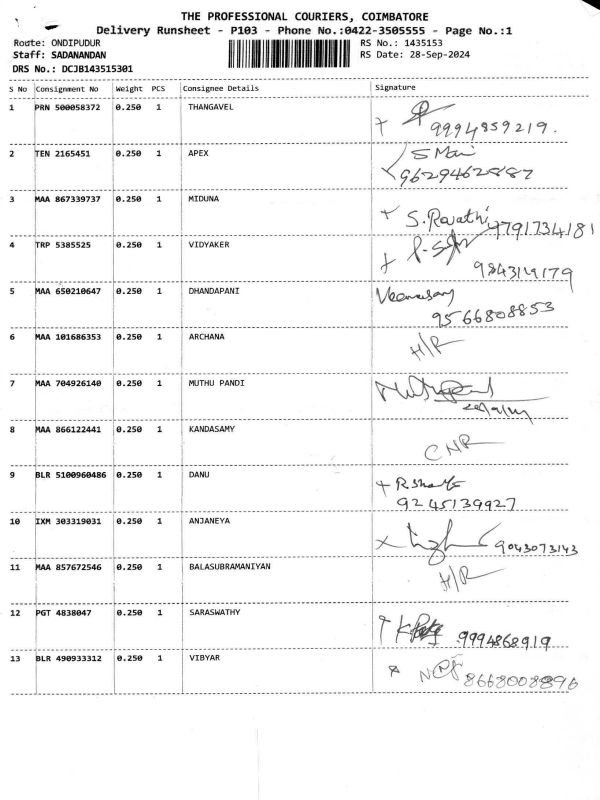 THE PROFESSIONAL COURIERS, COIMBATORE
Delivery Runsheet - P103 - Phone No.:0422-3505555 - Page No.:1
Route: ONDIPUDUR RS No.: 1435153
Staff: SADANANDAN RS Date: 28-Sep-2024
DRS No.: DCJB143515301
S No Consignment No Weight PCS Consignee Details Signature
1 PRN 500058372 0.250 1 THANGAVEL
9994859219.
2 TEN 2165451 0.250 1 APEX S Mani
9629462887
3 MAA 867339737 0.250 1 MIDUNA
S. Revathi 9791734181
4 TRP 5385525 0.250 1 VIDYAKER
9843119179
5 MAA 650210647 0.250 1 DHANDAPANI
9566808853
6 MAA 101686353 0.250 1 ARCHANA H/R
7 MAA 704926140 0.250 1 MUTHU PANDI
8 MAA 866122441 0.250 1 KANDASAMY
CNR
9 BLR 5100960486 0.250 1 DANU
9245139927
10 IXM 303319031 0.250 1 ANJANEYA
9043073143
11 MAA 857672546 0.250 1 BALASUBRAMANIYAN H/R
12 PGT 4838047 0.250 1 SARASWATHY
9994868919
13 BLR 490933312 0.250 1 VIBYAR
8668008896